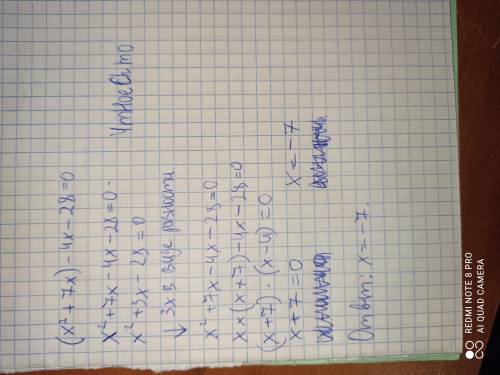 (x²+7x)-4x-28=0
x²+7x-4x-28=0
x²+3x-28=0
↓ 3x в виде разности
x²+7x-4x-28=0
x×(x+7)-4x-28=0
(x+7)·(x-4)=0
x+7=0 x=-7
Ответ: x=-7.
REDMI NOTE 8 PRO
AI QUAD CAMERA